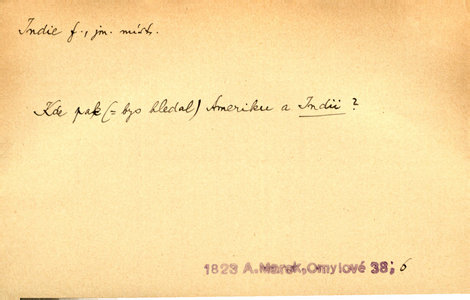 Indie f., jm. míst.
Kde pak (= bys hledal) Ameriku a Indii ?
1823 A.Marek,Omylové 38; 6